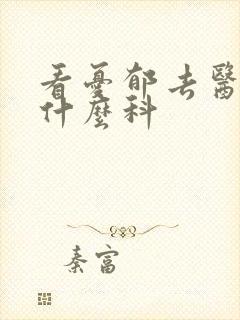 看憂郁去醫
什麼科
秦富